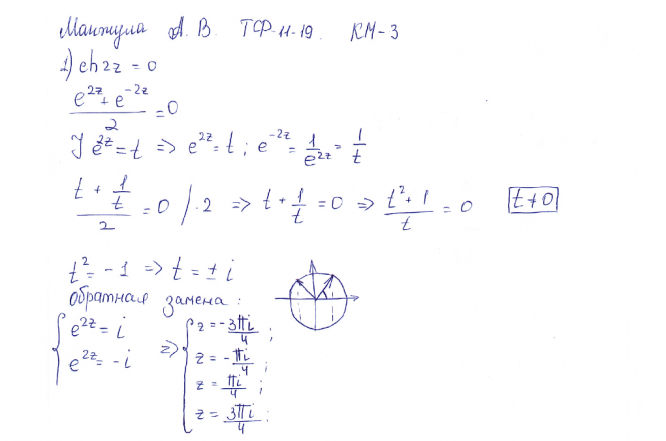 Мантула А. В. ТФ-11-19. КМ-3
1) ch2z = 0
(e^{2z} + e^{-2z})/2 = 0
] e^{2z} = t => e^{2z} = t ; e^{-2z} = 1/e^{2z} = 1/t
(t + 1/t)/2 = 0 / · 2 => t + 1/t = 0 => (t² + 1)/t = 0 t ≠ 0
t² = -1 => t = ± i
обратная замена :
{ e^{2z} = i
e^{2z} = -i
=> { z = -3πi/4 ;
z = -πi/4 ;
z = πi/4 ;
z = 3πi/4 ;